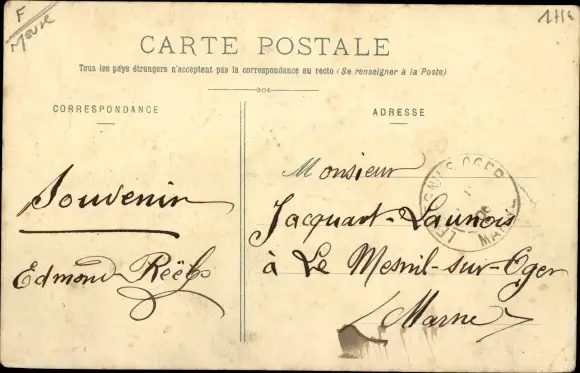 F
Meuse
CARTE POSTALE
Tous les pays étrangers n'acceptent pas la correspondance au recto (Se renseigner à la Poste)
CORRESPONDANCE
ADRESSE
Souvenir
Edmond
Monsieur
Jacquart-Launois
à Le Mesnil-sur-Oger
(Marne)